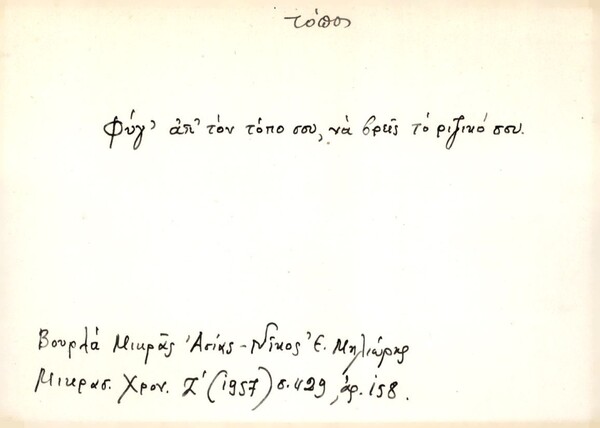 τόπος
Φύγ' ἀπ' τὸν τόπο σου, νὰ βρῇς τὸ ριζικό σου.
Βουρλά Μικρᾶς Ἀσίας - Νῖκος Ἐ. Μηλιώρης
Μικρασ. Χρον. Ζ' (1957) σ. 429, ἀρ. 158.